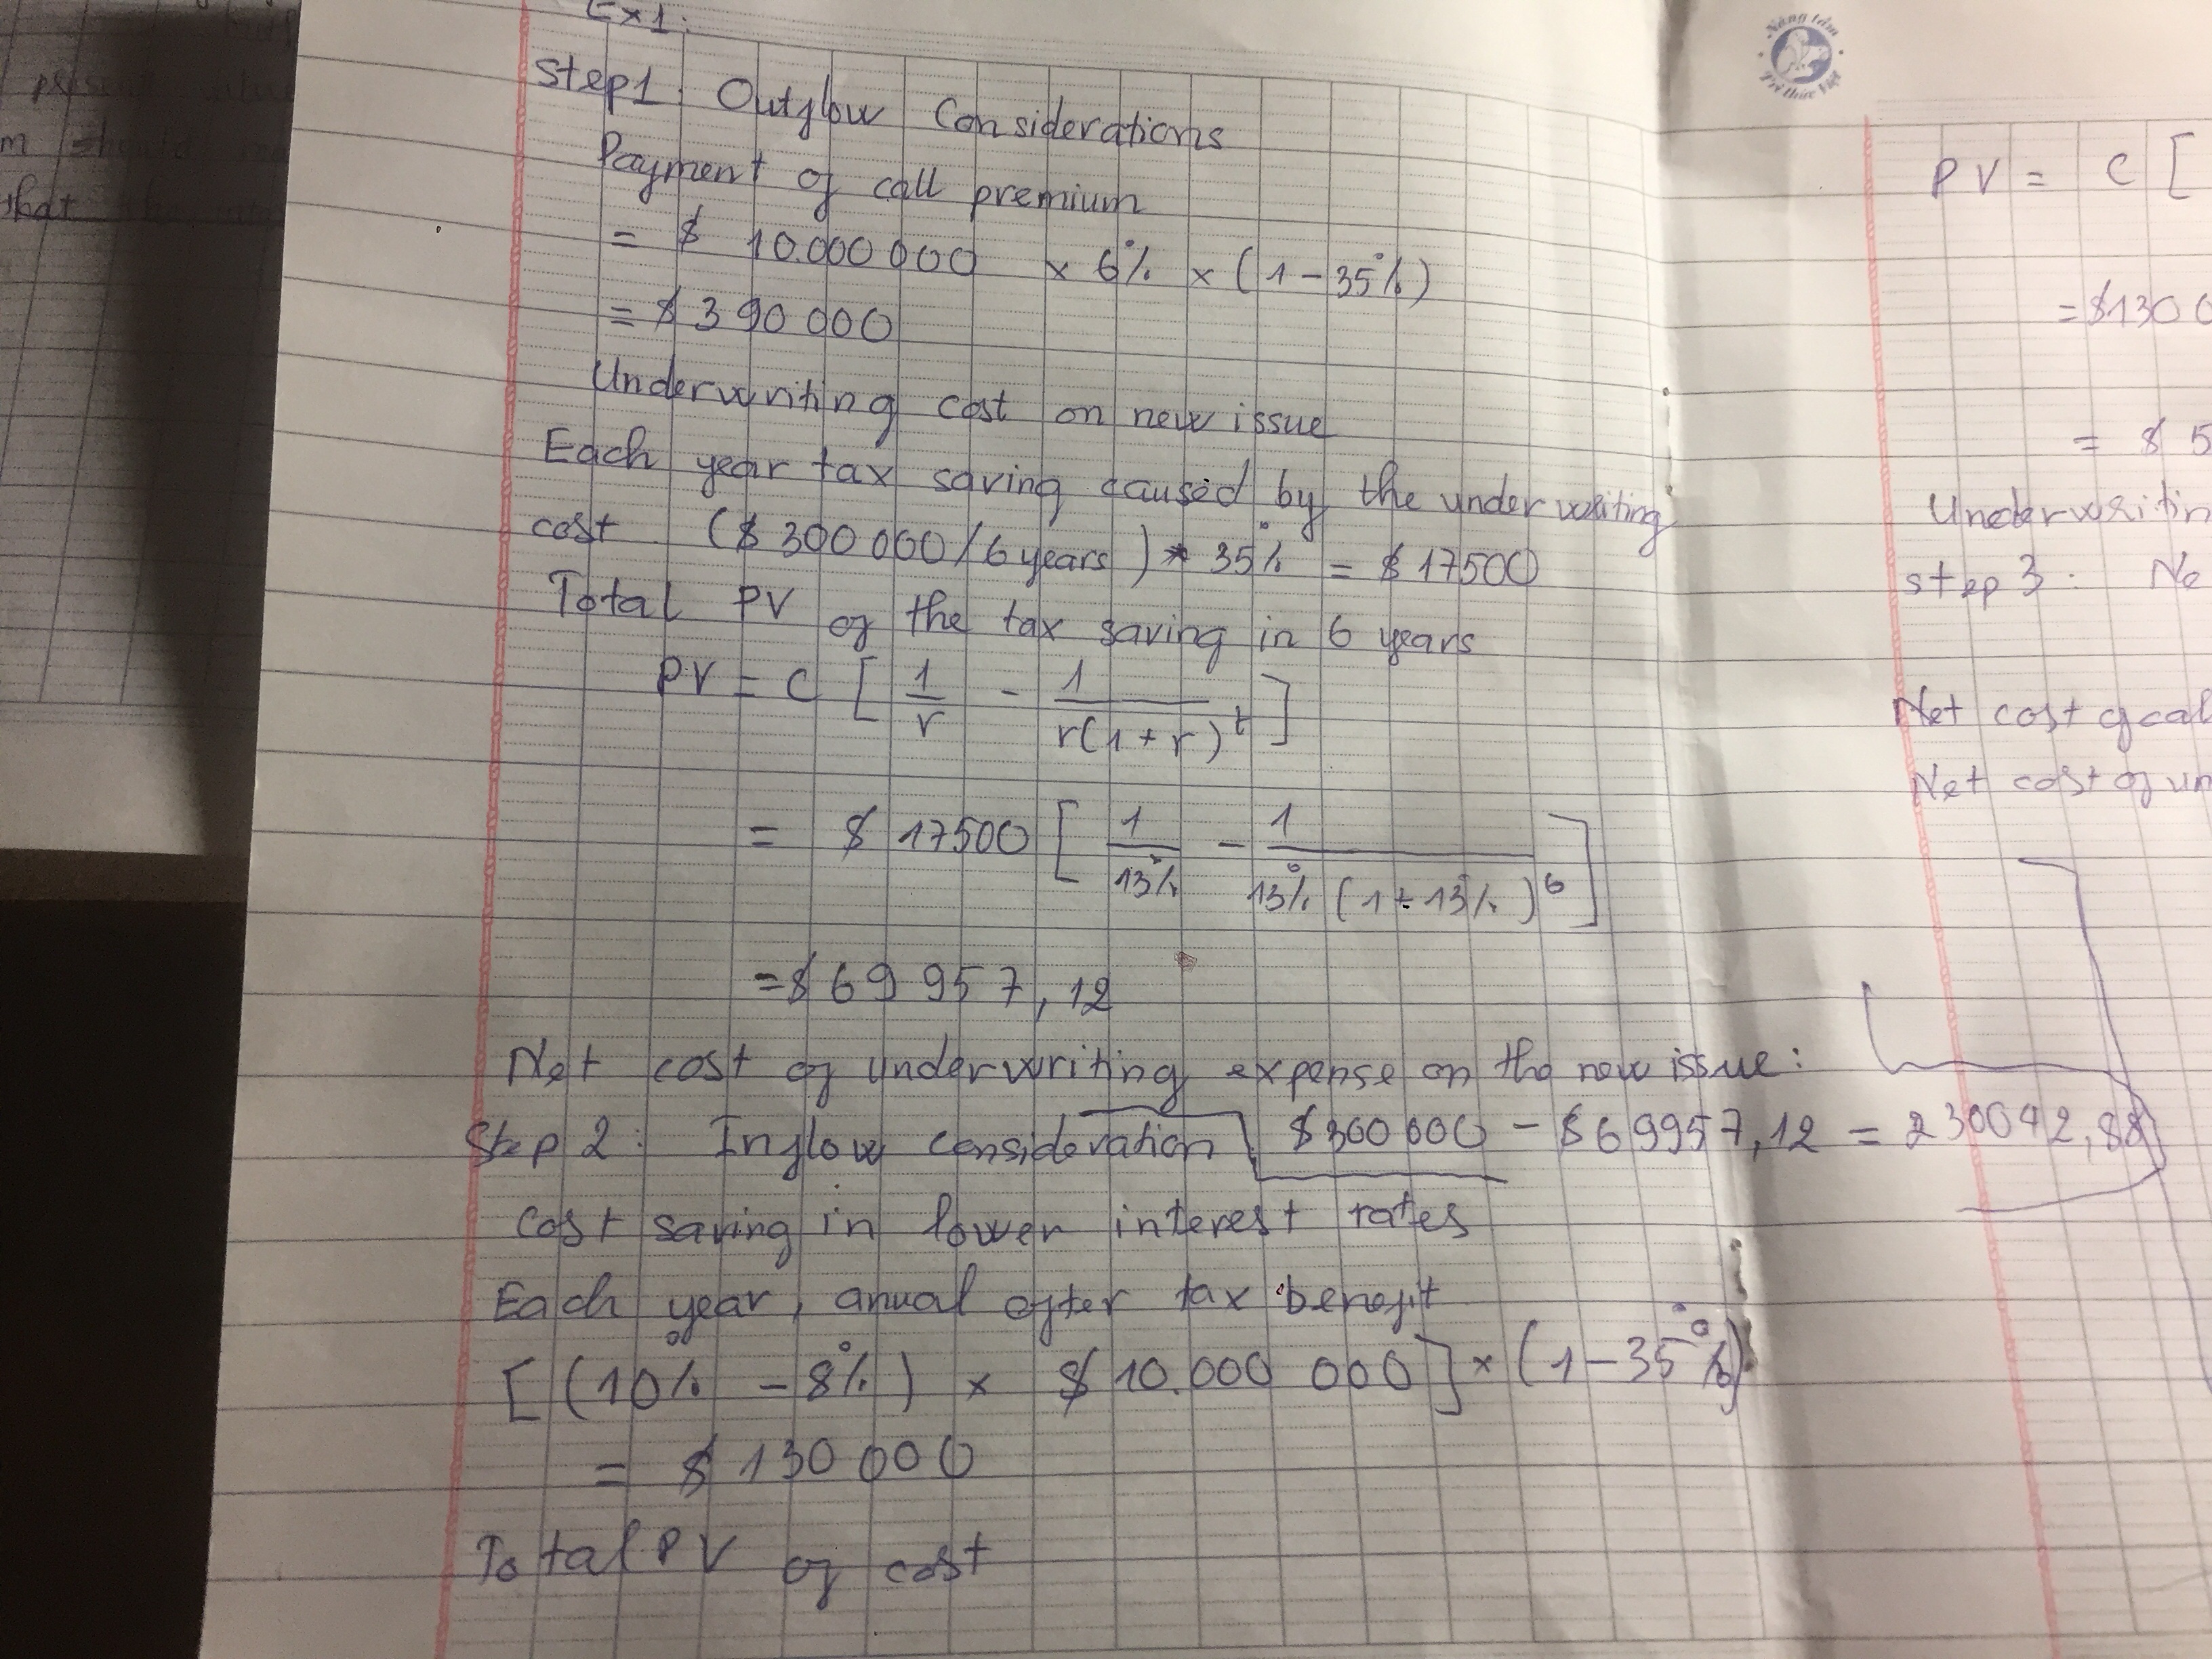 Ex1:
Step1: Outflow Considerations
Payment of call premium
= $ 10.000 000 × 6% × (1 - 35%)
= $ 390 000
Underwriting cost on new issue
Each year tax saving caused by the underwriting
cost ($ 300 000/6 years) * 35% = $ 17500
Total PV of the tax saving in 6 years
PV = C [ 1/r - 1/r(1+r)^t ]
= $ 17500 [ 1/13% - 1/13% (1+13%)^6 ]
= $ 69 957,12
Net cost of underwriting expense on the new issue:
$300 000 - $69957,12 = 230042,88
Step 2: Inflow consideration
Cost saving in lower interest rates
Each year, anual after tax benefit
[ (10% - 8%) × $ 10.000 000 ] × (1 - 35%)
= $ 130 000
Total PV of cost
Nâng tầm Trí thức Việt
PV = C [
= $130 0
= $ 5
Underwritin
step 3: Ne
Net cost of cal
Net cost of un
present value
m should
that